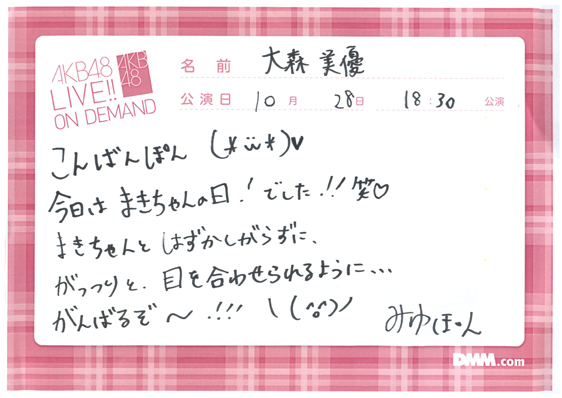 AKB48
LIVE!!
ON DEMAND
AKB
48
名 前 大森 美優
公演日 10月 28日 18:30 公演
こんばんぽん (*ü*)♥
今日は まきちゃんの日!でした!! 笑♡
まきちゃんと はずかしがらずに、
がっつりと、目を合わせられるように...
がんばるぞ 〜 !!! \(^o^)/
みゆぽん
DMM.com